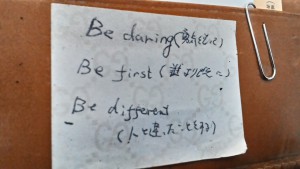 Be daring (勇気をもって)
Be first (誰よりも先に)
Be different
(人と違ったことをする)